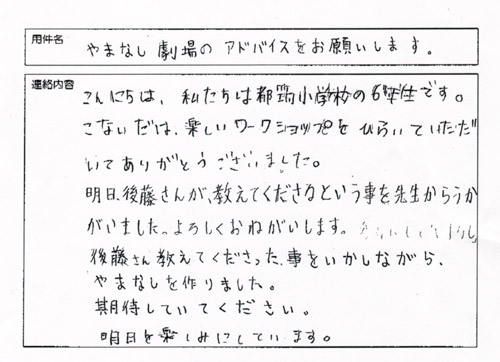 用件名
やまなし劇場のアドバイスをお願いします。
連絡内容
こんにちは、私たちは都筑小学校の6年生です。
こないだは、楽しいワークショップをひらいていただ
いてありがとうございました。
明日、後藤さんが、教えてくださるという事を先生からうか
がいました。よろしくおねがいします。
後藤さん教えてくださった、事をいかしながら、
やまなしを作りました。
期待していてください。
明日を楽しみにしています。